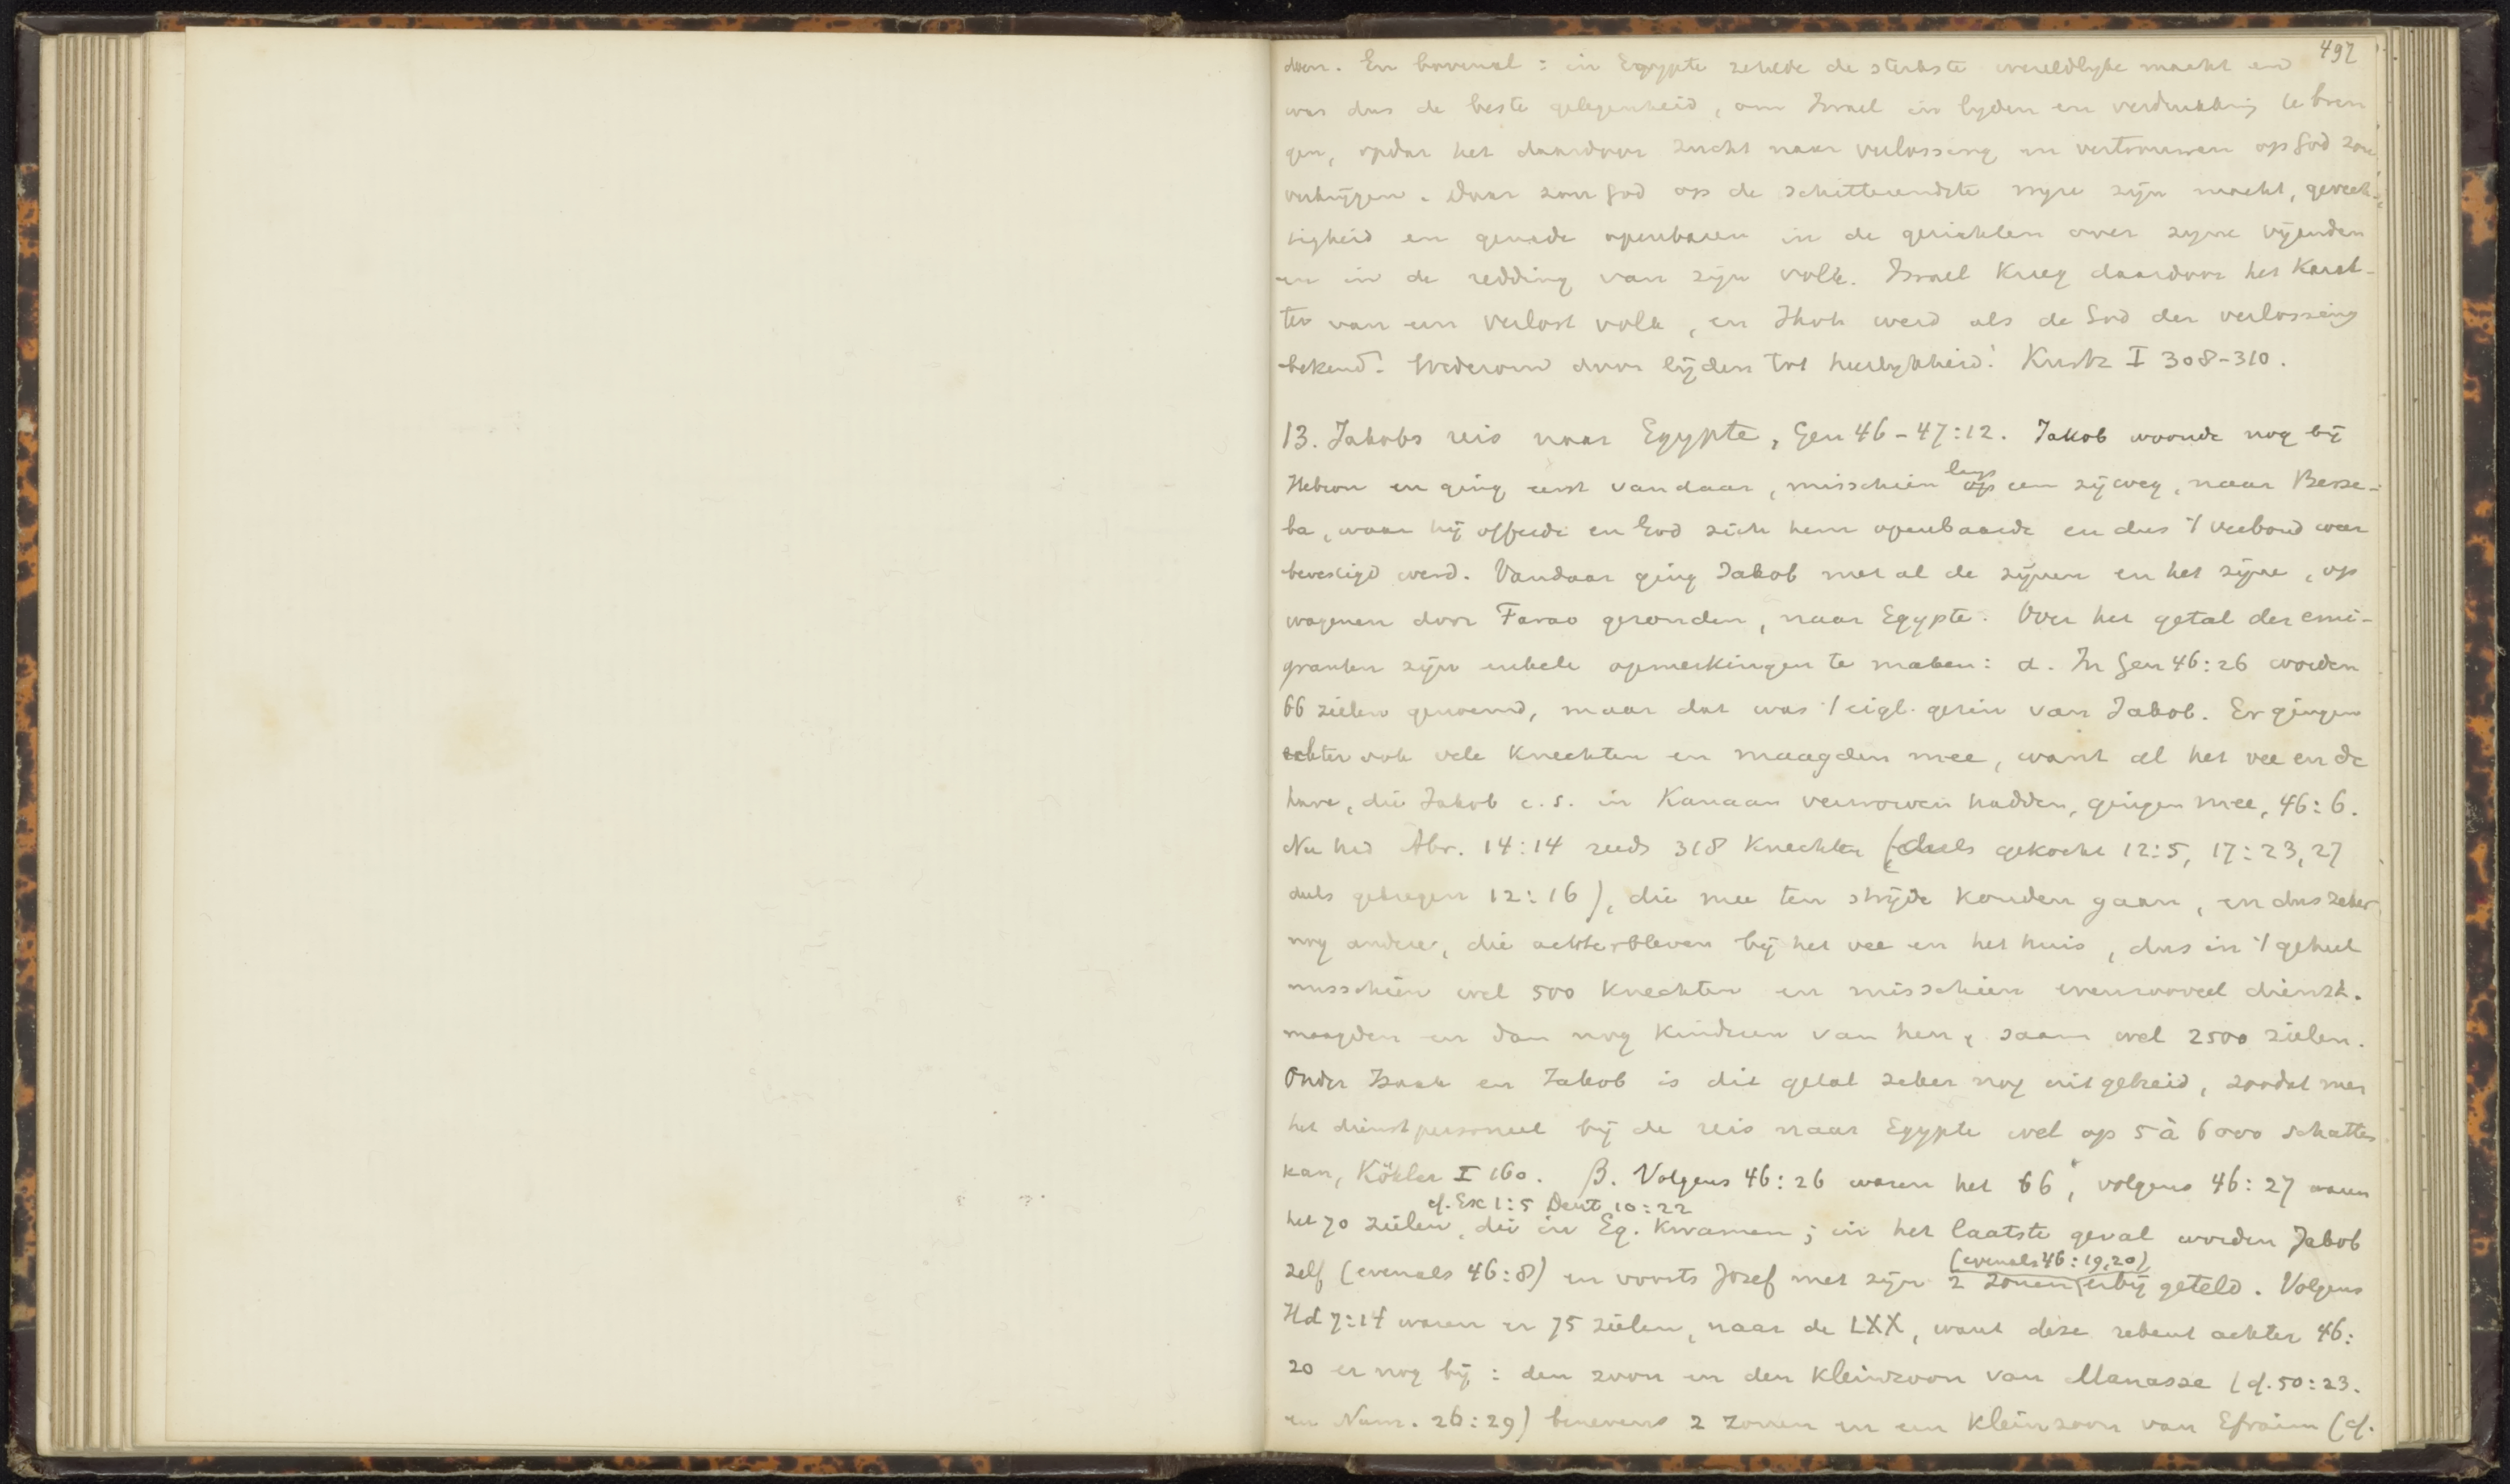 497
doen. En bovenal: in Egypte zetelde de sterkste wereldlyke macht en
was dus de beste gelegenheid, om Israel in lyden en verdrukking te bren
gen, opdat het daardoor zucht naar verlossing en vertrouwen op God zou
verkrijgen. Daar zou God op de schitterendste wyze zijn macht, gerech-
tigheid en genade openbaren in de gerichten over zyne vijanden
en in de redding van zijn volk. Israel kreeg daardoor het karak-
ter van een verlost volk, en Jhvh werd als de God der verlossing
bekend. Wederom door lijden tot heerlykheid! Kurtz I 308-310.
13. Jakobs reis naar Egypte, Gen 46-47:12. Jakob woonde nog bij
Hebron en ging eerst vandaar, misschien langs een zijweg, naar Berse-
ba, waar hij offerde en God zich hem openbaarde en dus 't verbond weer
bevestigd werd. Vandaar ging Jakob met al de zijnen en het zijne, op
wagenen door Farao gezonden, naar Egypte. Over het getal der emi-
granten zijn enkele opmerkingen te maken: α. In Gen 46:26 worden
66 zielen genoemd, maar dat was 't eigl. gezin van Jakob. Er gingen
echter ook vele knechten en maagden mee, want al het vee en de
have, die Jakob c.s. in Kanaan verworven hadden, gingen mee, 46:6.
Nu had Abr. 14:14 reeds 318 knechten (deels gekocht 12:5, 17:23,27
deels gekregen 12:16), die mee ten strijde konden gaan, en dus zeker
nog andere, die achterbleven bij het vee en het huis, dus in 't geheel
misschien wel 500 knechten en misschien evenzooveel dienst-
maagden en dan nog kinderen van hen, saam wel 2500 zielen.
Onder Izaak en Jakob is dit getal zeker nog uitgebreid, zoodat men
het dienstpersoneel bij de reis naar Egypte wel op 5 à 6000 schatten
kan, Köhler I 160. β. Volgens 46:26 waren het 66, volgens 46:27 waren
cf. Ex 1:5 Deut 10:22
het 70 zielen, die in Eg. kwamen; in het laatste geval worden Jakob
(evenals 46:19,20)
zelf (evenals 46:8) en voorts Jozef met zijn 2 zonen erbij geteld. Volgens
Hd 7:14 waren er 75 zielen, naar de LXX, want deze rekent achter 46:
20 er nog bij: den zoon en den kleinzoon van Manasse (cf. 50:23.
en Num. 26:29) benevens 2 zonen en een kleinzoon van Efraim (cf.